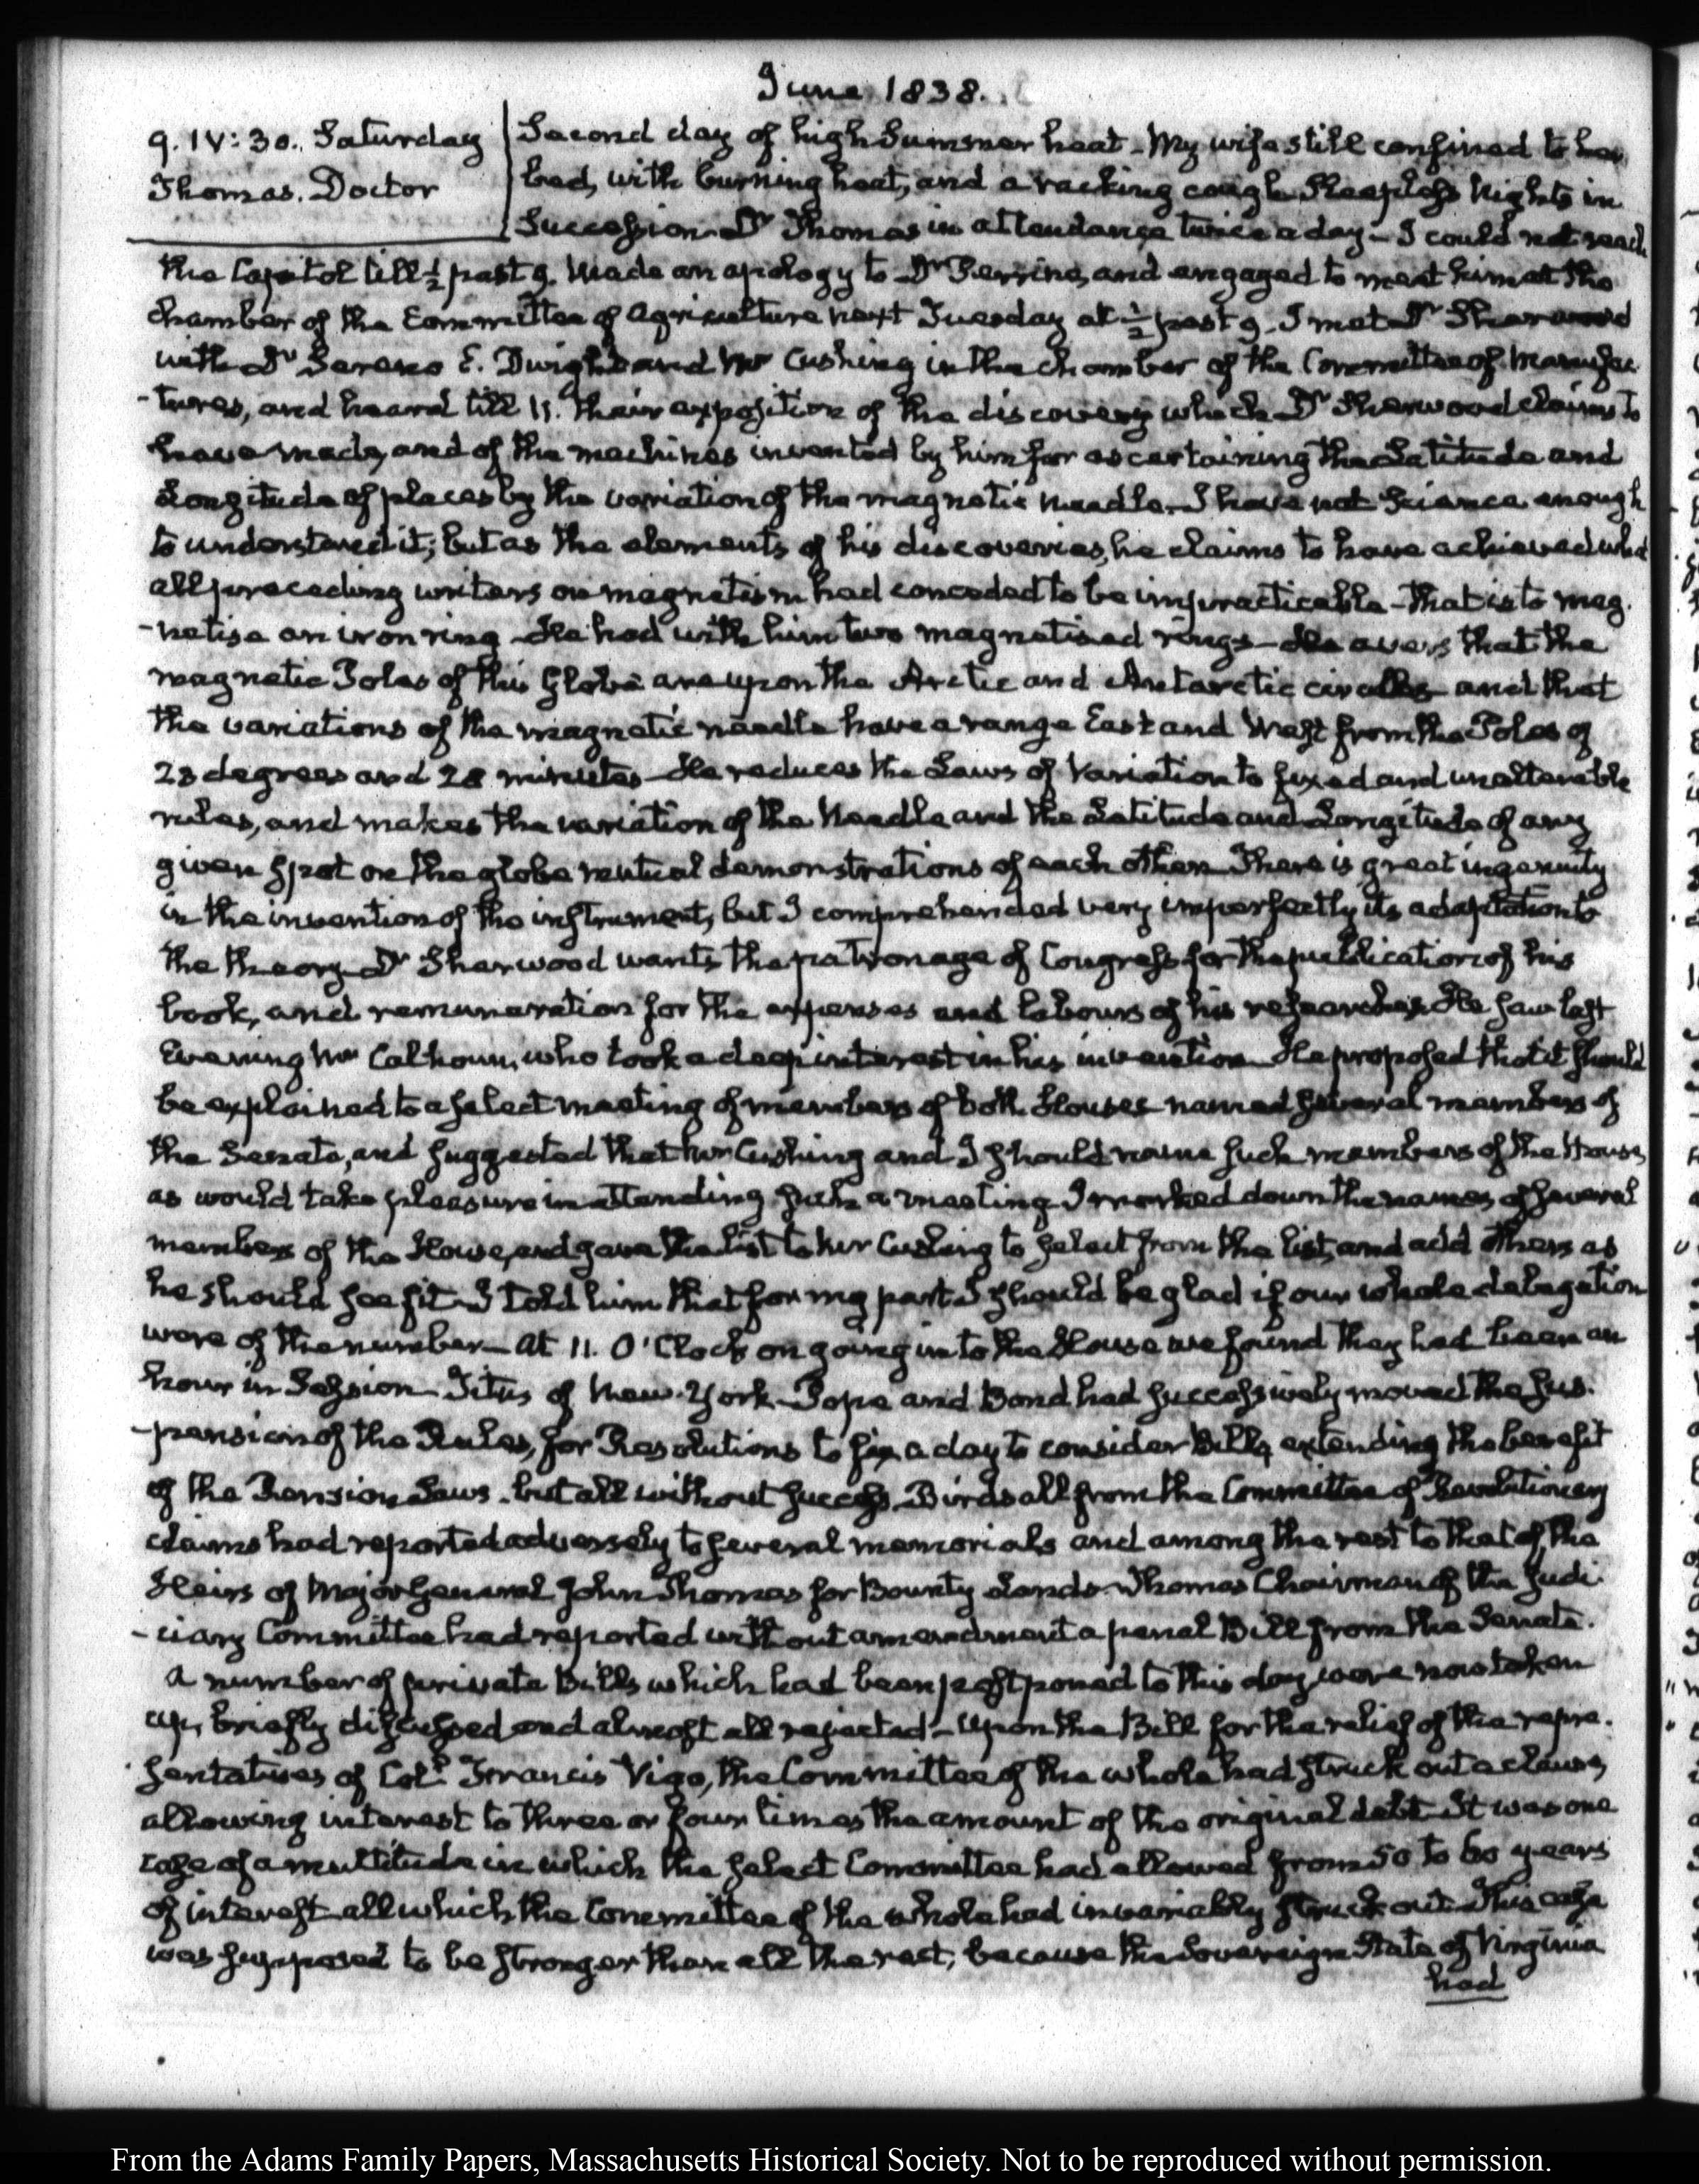 June 1838.
9. IV:30. Saturday
Thomas. Doctor
Second day of high Summer heat - My wife still confined to her
bed, with burning heat, and a racking cough Sleepless Nights in
Succession. Dr Thomas in attendance twice a day - I could not reach
the Capitol till ½ past 9. Made an apology to Dr Perrine, and engaged to meet him at the
chamber of the Committee of Agriculture next Tuesday at ½ past 9. I met Dr Sherwood
with Dr Sereno E. Dwight and Mr Cushing in the chamber of the Committee of Manufac
-tures, and heard till 11. their exposition of the discovery which Dr Sherwood claims to
have made, and of the machines invented by him for ascertaining the Latitude and
Longitude of places by the variation of the magnetic Needle. I have not Science enough
to understand it; but as the elements of his discoveries, he claims to have achieved what
all preceding writers on magnetism had conceded to be impracticable - That is to mag.
-netise an iron ring - He had with him two magnetised rings - He avers that the
magnetic Poles of this Globe are upon the Arctic and Antarctic circles and that
the variations of the magnetic needle have a range East and West from the Poles of
23 degrees and 28 minutes - He reduces the Laws of Variation to fixed and unalterable
rules, and makes the variation of the Needle and the Latitude and Longitude of any
given spot on the globe mutual demonstrations of each other. There is great ingenuity
in the invention of the instrument, but I comprehended very imperfectly its adaptation to
the theory. Dr Sherwood wants the patronage of Congress for the publication of his
book, and remuneration for the expenses and labours of his researches. He saw last
Evening Mr Calhoun, who took a deep interest in his invention. He proposed that it should
be explained to a select meeting of members of both Houses named several members of
the Senate, and suggested that Mr Cushing and I should name such members of the House,
as would take pleasure in attending such a meeting I marked down the names of several
members of the House, and gave the list to Mr Cushing to select from the list, and add others as
he should see fit - I told him that for my part I should be glad if our whole delegation
were of the number - At 11. O'Clock on going in to the House we found they had been an
hour in Session - Titus of New-York - Pope and Bond had successively moved the sus.
-pension of the Rules, for Resolutions to fix a day to consider Bills, extending the benefit
of the Pension Laws. but all without success. Birdsall from the Committee of Revolutionary
claims had reported adversely to several memorials and among the rest to that of the
Heirs of Major General John Thomas for Bounty Lands. Thomas Chairman of the Judi
-ciary Committee had reported without amendment a penal Bill from the Senate.
A number of private Bills which had been postponed to this day, were now taken
up, briefly discussed and almost all rejected - Upon the Bill for the relief of the repre.
sentatives of Coll. Francis Vigo, the Committee of the whole had struck out a clause,
allowing interest to three or four times the amount of the original debt. It was one
case of a multitude in which the select Committee had allowed from 50 to 60 years
of interest all which the Committee of the whole had invariably struck out. This case
was supposed to be stronger than all the rest, because the Sovereign State of Virginia
had
From the Adams Family Papers, Massachusetts Historical Society. Not to be reproduced without permission.